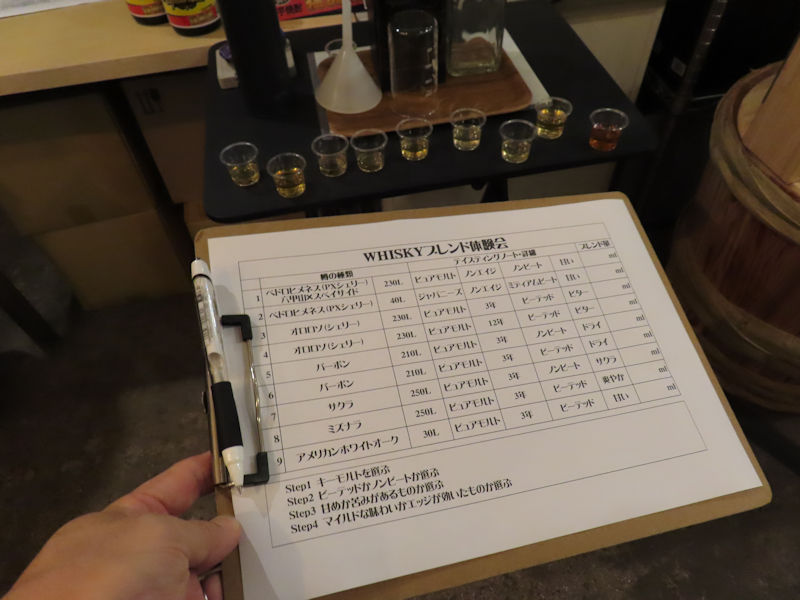 WHISKYブレンド体験会
樽の種類 テイスティングノート・詳細 ブレンド量
1 ペドロヒメネス(PXシェリー) 230L ピュアモルト ノンエイジ ノンピート 甘い ml
六甲山×スペイサイド
2 ペドロヒメネス(PXシェリー) 40L ジャパニーズ ノンエイジ ミディアムピート
3 オロロソ(シェリー) 230L ピュアモルト 3年 ピーテッド ビター ml
4 オロロソ(シェリー) 230L ピュアモルト 12年 ピーテッド ビター ml
5 バーボン 210L ピュアモルト 3年 ノンピート ドライ ml
6 バーボン 210L ピュアモルト 3年 ピーテッド ドライ ml
7 サクラ 250L ピュアモルト 3年 ノンピート サクラ ml
8 ミズナラ 250L ピュアモルト 3年 ピーテッド 爽やか ml
9 アメリカンホワイトオーク 30L ピュアモルト 3年 ピーテッド 甘い ml
Step1 キーモルトを選ぶ
Step2 ピーテッドかノンピートか選ぶ
Step3 甘めか苦みがあるものか選ぶ
Step4 マイルドな味わいかエッジが効いたものか選ぶ